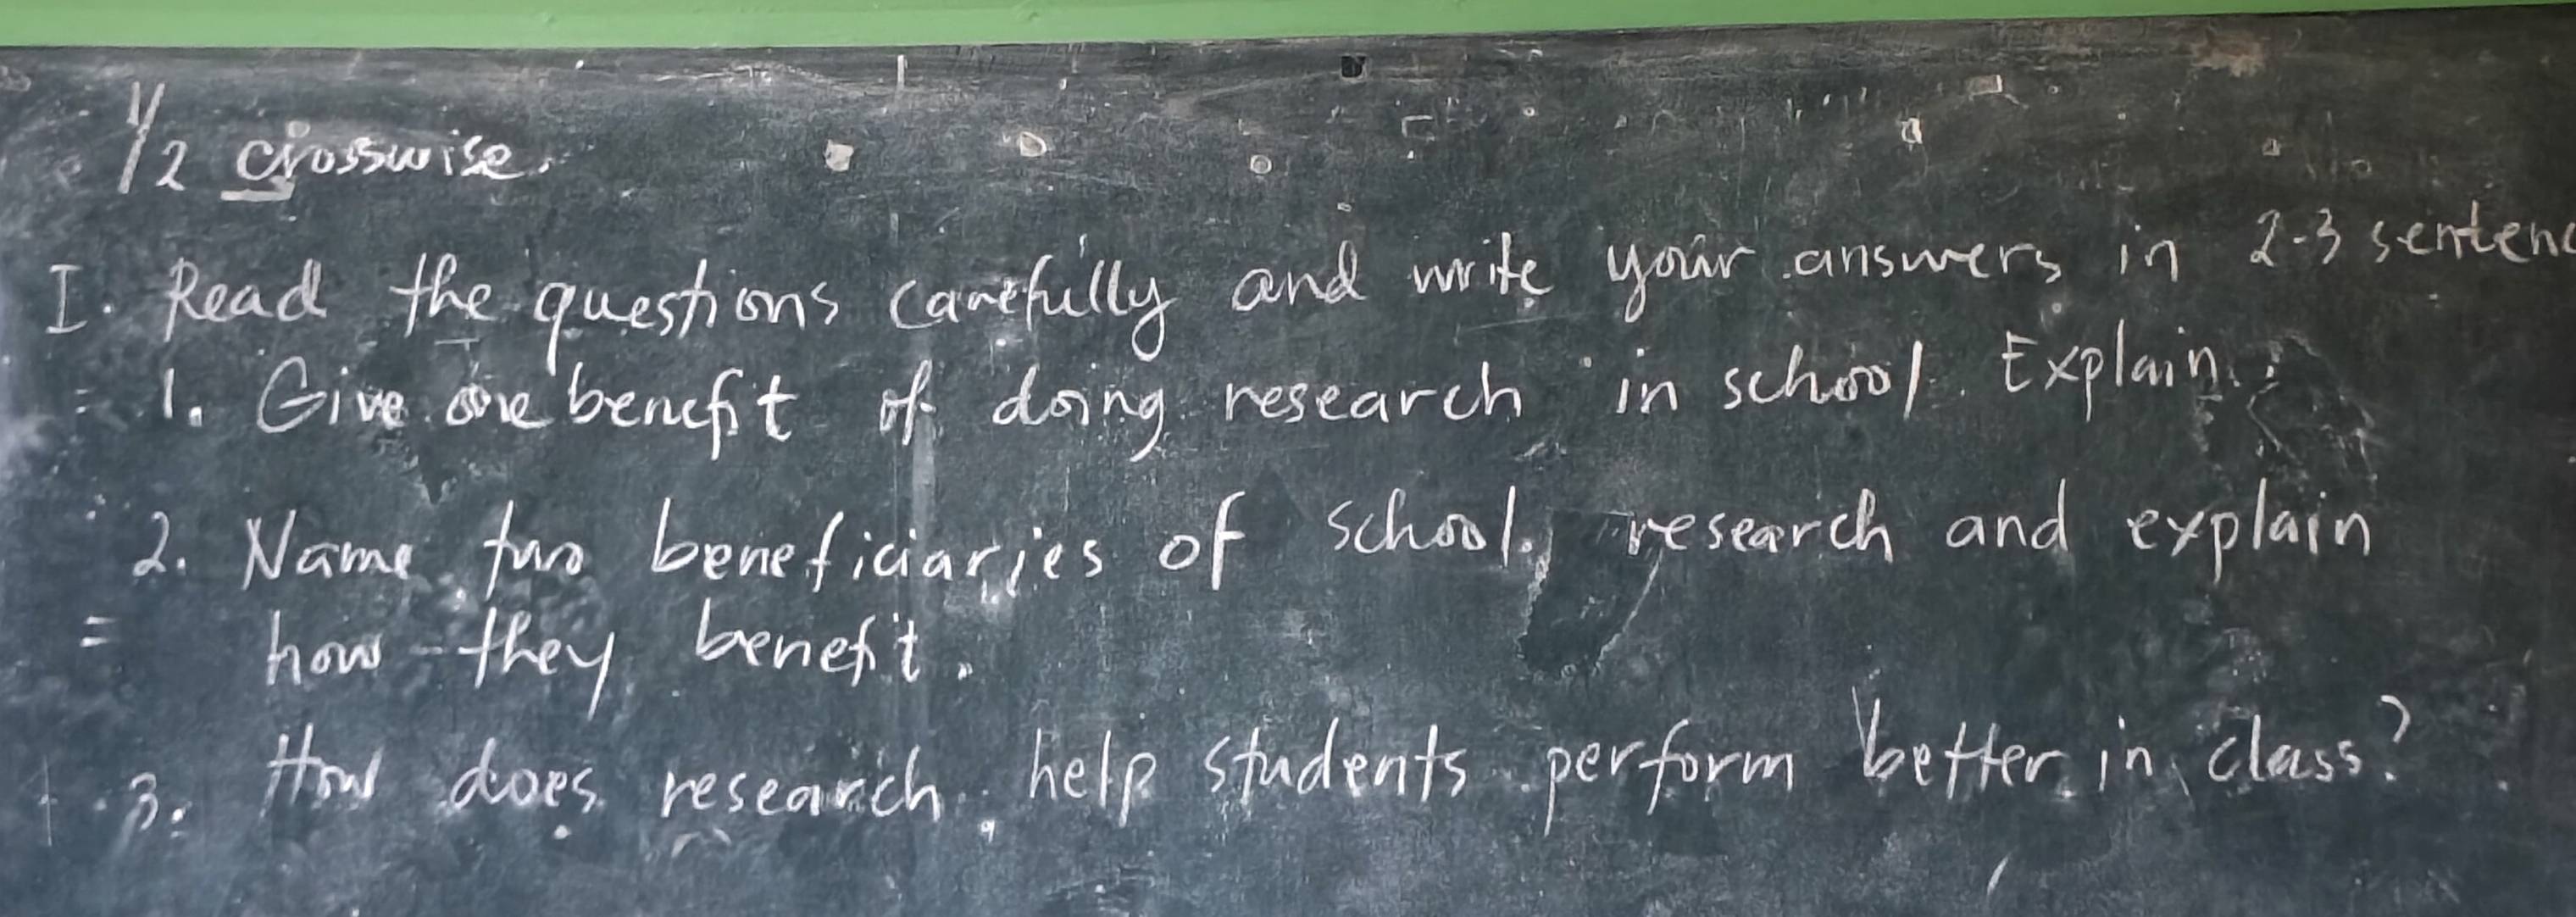 1/2 crosswise.
I. Read the questions carefully and write your answers in 2-3 sentenc
1. Give one benefit of doing research in school. Explain.
2. Name two beneficiaries of school research and explain
how they benefit.
3. How does research help students perform better in class?